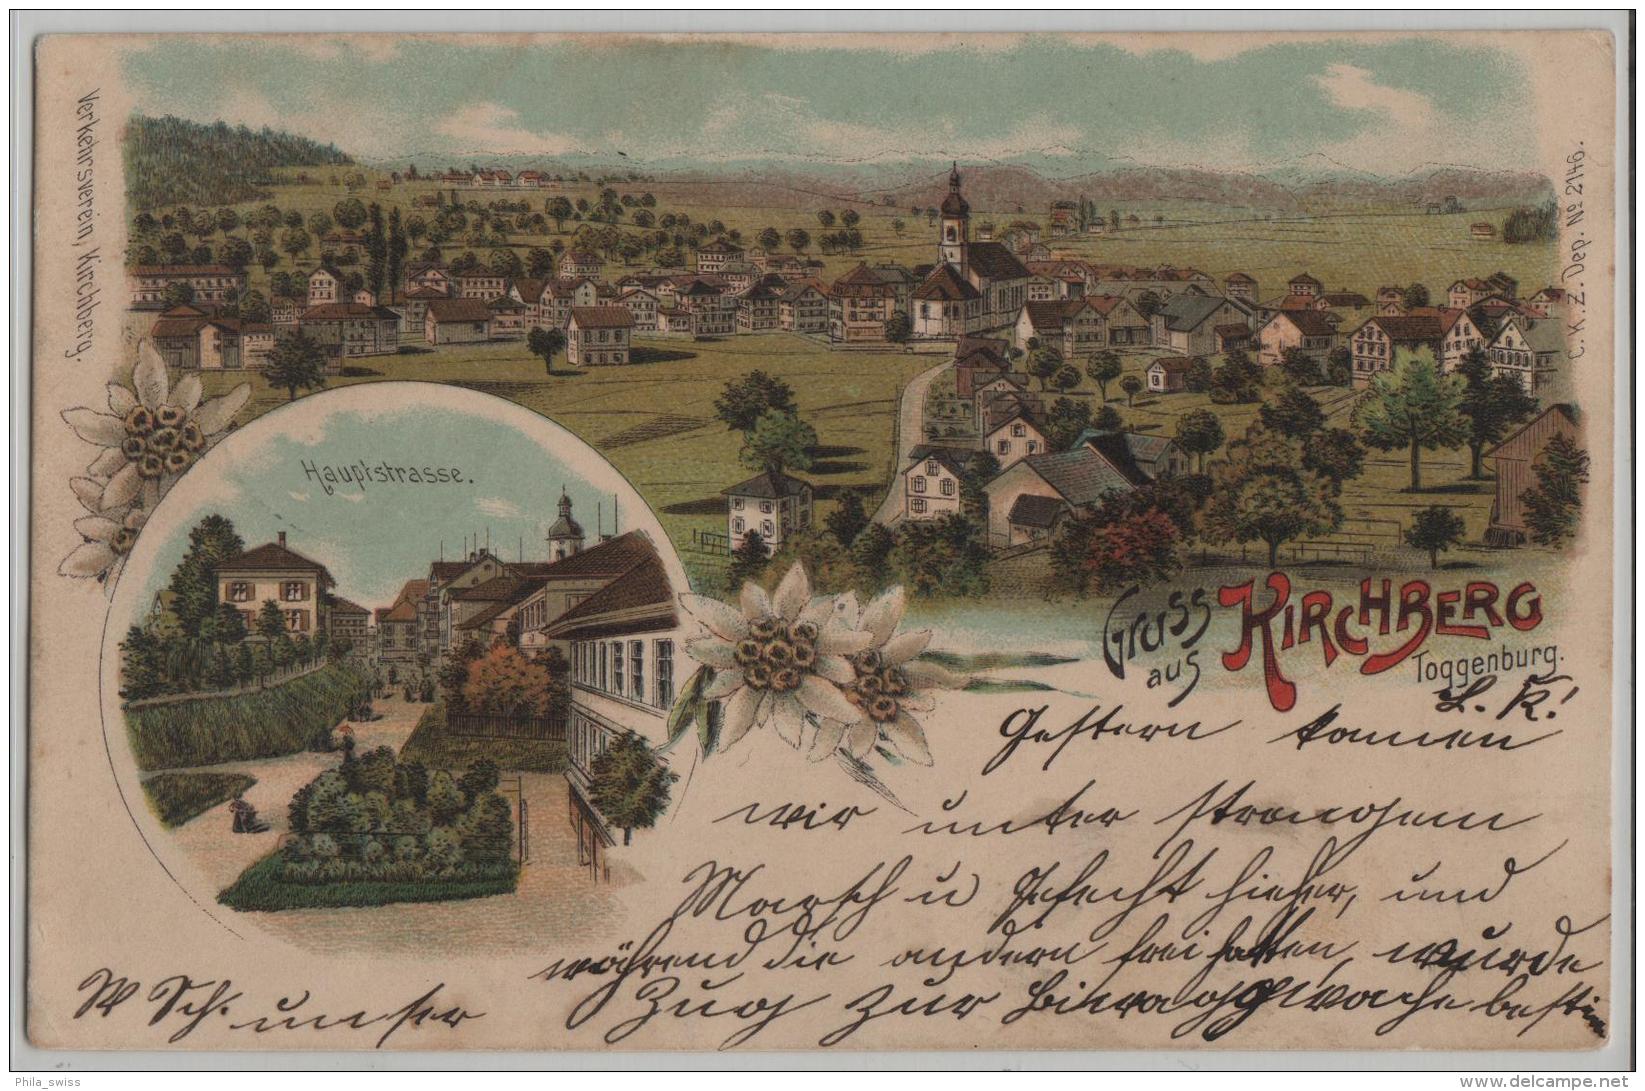 Verkehrsverein, Kirchberg.
C. K. Z. Dep. Nº 2146.
Hauptstrasse.
Gruss
aus
KIRCHBERG
Toggenburg.
L. K.!
Gestern kamen
wir unter strengem
Marsch u Gefecht hieher, und
während die andern frei hatten, wurde
W Sch. unser Zug zur
Phila_swiss
www.delcampe.net